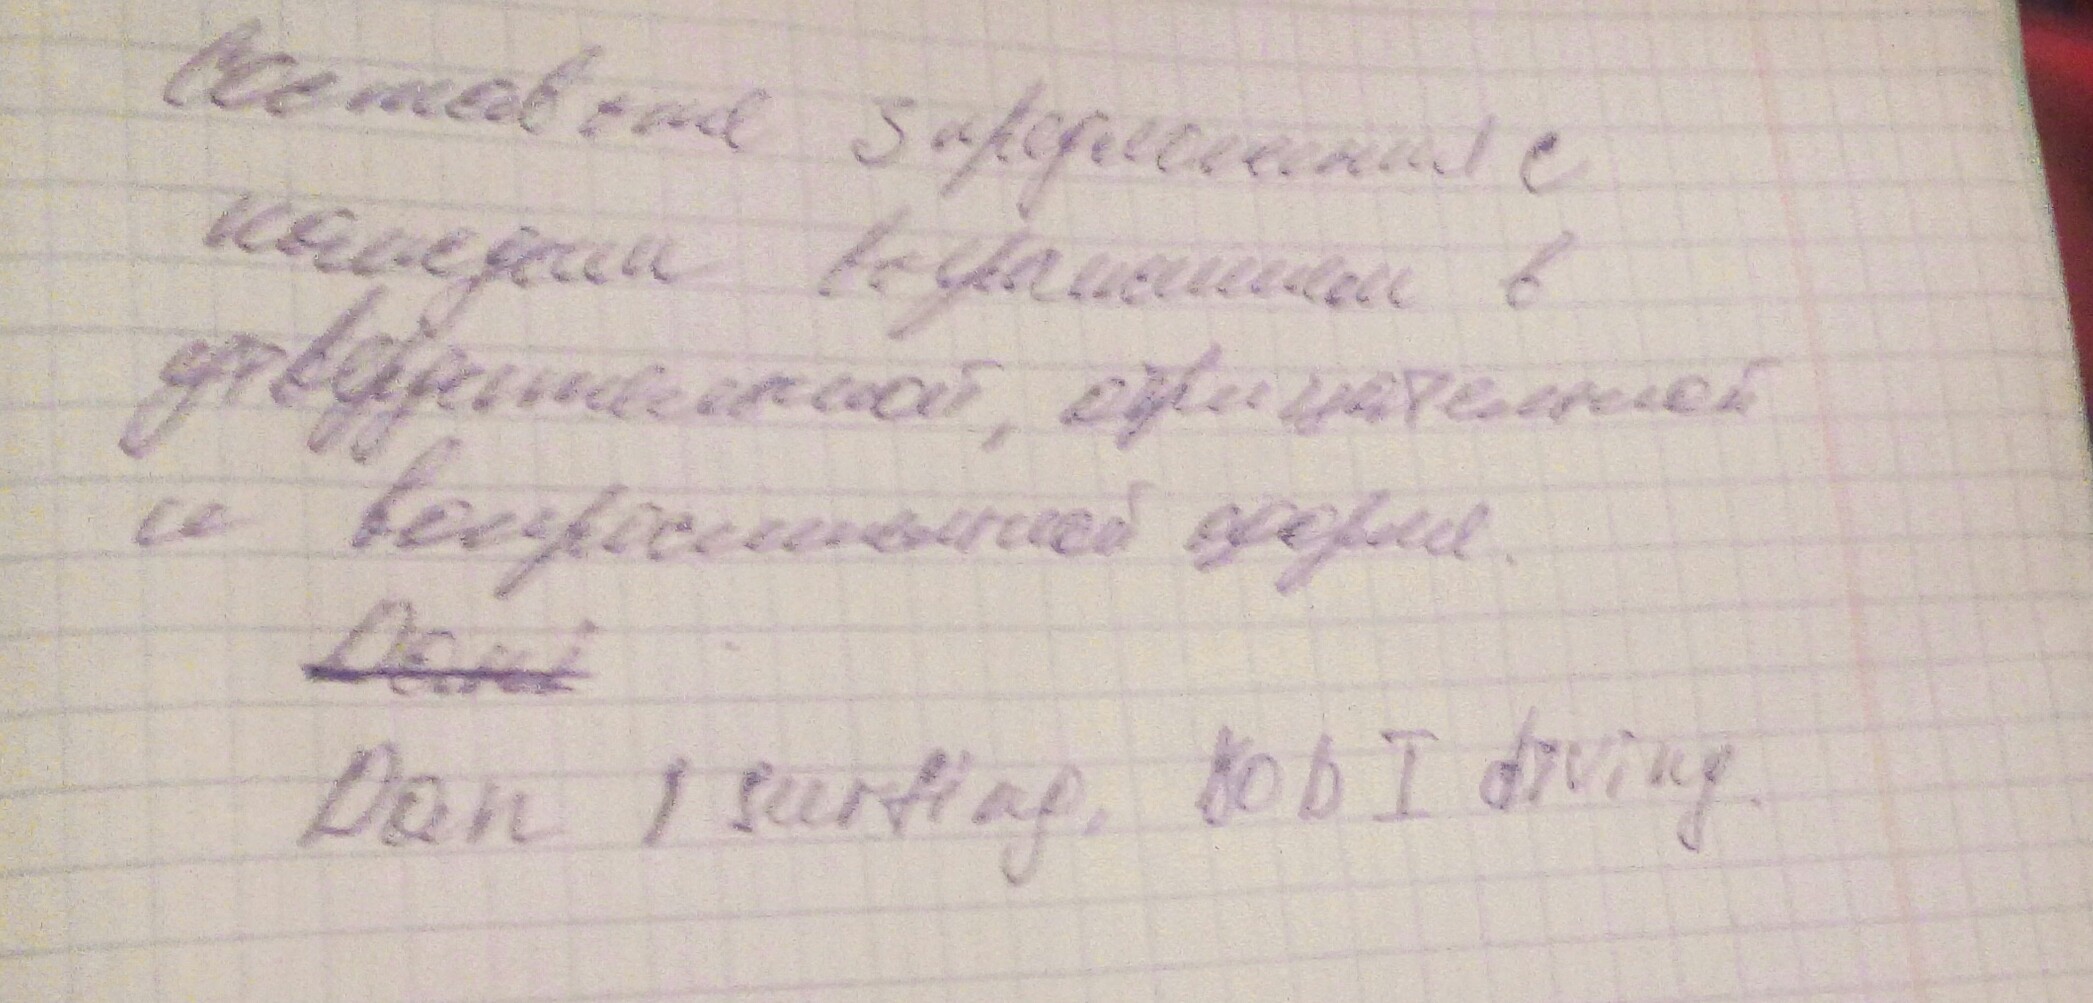 Составьте 3 предложения с
каждым выражением в
утвердительной, отрицательной
и вопросительной форме.
Dan I surfing. Bob I diving.